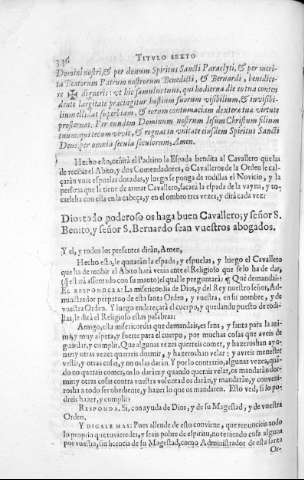 336 TITVLO SEXTO
Domini nostri, & per donum Spiritus Sancti Paracliti, & per meri-
ta Sanctorum Patrum nostrorum Benedicti, & Bernardi, benedice-
re ✠ digneris: ut his famulus tuus, qui hodierna die ex tua conce-
dente largitate præcingitur hostium suorum visibilium, & invisibi-
lium elidat superbiam, & eorum contumaciam dextera tua virtute
prosternat. Per eundem Dominum nostrum Iesum Christum filium
tuum, qui tecum vivit, & regnat in unitate eiusdem Spiritus Sancti
Deus, per omnia secula seculorum, Amen.
Hecho esto, ceñirá el Padrino la Espada bendita al Cavallero que ha
de recibir el Abito, y dos Comendadores, ò Cavalleros de la Orden le cal-
çarán unas espuelas doradas, y luego se ponga de rodillas el Novicio, y la
persona que le tiene de armar Cavallero, sacará la espada de la vayna, y to-
carlehá con ella en la cabeça, y en el ombro tres vezes, y dirá cada vez:
Dios todo poderoso os haga buen Cavallero; y señor S.
Benito, y señor S. Bernardo sean vuestros abogados.
Y el, y todos los presentes dirán, Amen.
Hecho esto, le quitarán la espada, y espuelas, y luego el Cavallero
que ha de recibir el Abito hará venia ante el Religioso que se lo ha de dar,
que está assentado con su manto, el qual le preguntará: Què demandais?
EL RESPONDERA: La misericordia de Dios, y del Rey nuestro señor, Ad-
ministrador perpetuo de esta santa Orden, y vuestra, en su nombre, y de
vuestra Orden. Y luego endereçará el cuerpo, y quedando puesto de rodi-
llas, le dirá el Religioso estas palabras:
Amigo, esta misericordia que demandais, es sana, y santa para la ani-
ma, y muy aspera, y fuerte para el cuerpo, por muchas cosas que aveis de
guardar, y cumplir. Que algunas vezes querreis comer, y hazeros han ayu-
nar; y otras vezes querreis dormir, y hazeros han velar; y aveis menester
vestir, y otras cosas, y no os las darán. Y por lo contrario, algunas vezes, quã-
do no querais comer, os lo darán; y quando querais velar, os mandarán dor-
mir; y otras cosas contra vuestra voluntad os darán, y mandarán, y conve-
ros ha a todo ser obediente, y hazer lo que os mandaren. Esto ved, si lo po-
dreis hazer, y cumplir.
RESPONDA. Si, con ayuda de Dios, y de su Magestad, y de vuestra
Orden.
Y DIGALE MAS: Pues allende de esto conviene, que renuncieis todo
lo proprio que tuvieredes, y seais pobre de espiritu, no teniendo cosa alguna
por vuestra, sin licencia de su Magestad, como Administrador de esta santa
Or-